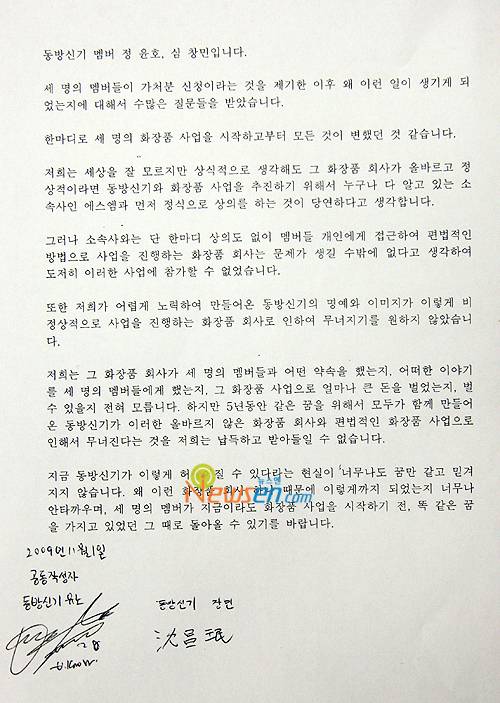 동방신기 멤버 정 윤호, 심 창민입니다.
세 명의 멤버들이 가처분 신청이라는 것을 제기한 이후 왜 이런 일이 생기게 되
었는지에 대해서 수많은 질문들을 받았습니다.
한마디로 세 명의 화장품 사업을 시작하고부터 모든 것이 변했던 것 같습니다.
저희는 세상을 잘 모르지만 상식적으로 생각해도 그 화장품 회사가 올바르고 정
상적이라면 동방신기와 화장품 사업을 추진하기 위해서 누구나 다 알고 있는 소
속사인 에스엠과 먼저 정식으로 상의를 하는 것이 당연하다고 생각합니다.
그러나 소속사와는 단 한마디 상의도 없이 멤버들 개인에게 접근하여 편법적인
방법으로 사업을 진행하는 화장품 회사는 문제가 생길 수밖에 없다고 생각하여
도저히 이러한 사업에 참가할 수 없었습니다.
또한 저희가 어렵게 노력하여 만들어온 동방신기의 명예와 이미지가 이렇게 비
정상적으로 사업을 진행하는 화장품 회사로 인하여 무너지기를 원하지 않았습니
다.
저희는 그 화장품 회사가 세 명의 멤버들과 어떤 약속을 했는지, 어떠한 이야기
를 세 명의 멤버들에게 했는지, 그 화장품 사업으로 얼마나 큰 돈을 벌었는지, 벌
수 있을지 전혀 모릅니다. 하지만 5년동안 같은 꿈을 위해서 모두가 함께 만들어
온 동방신기가 이러한 올바르지 않은 화장품 회사와 편법적인 화장품 사업으로
인해서 무너진다는 것을 저희는 납득하고 받아들일 수 없습니다.
지금 동방신기가 이렇게 질 수 있다라는 현실이 너무나도 꿈만 같고 믿겨
지지 않습니다. 왜 이런 화장품 회사 때문에 이렇게까지 되었는지 너무나
안타까우며, 세 명의 멤버가 지금이라도 화장품 사업을 시작하기 전, 똑 같은 꿈
을 가지고 있었던 그 때로 돌아올 수 있기를 바랍니다.
뉴스엔
Newsen.com
2009년 11월 1일
공동작성자
동방신기 유노 동방신기 창민
U-Know. 沈昌珉